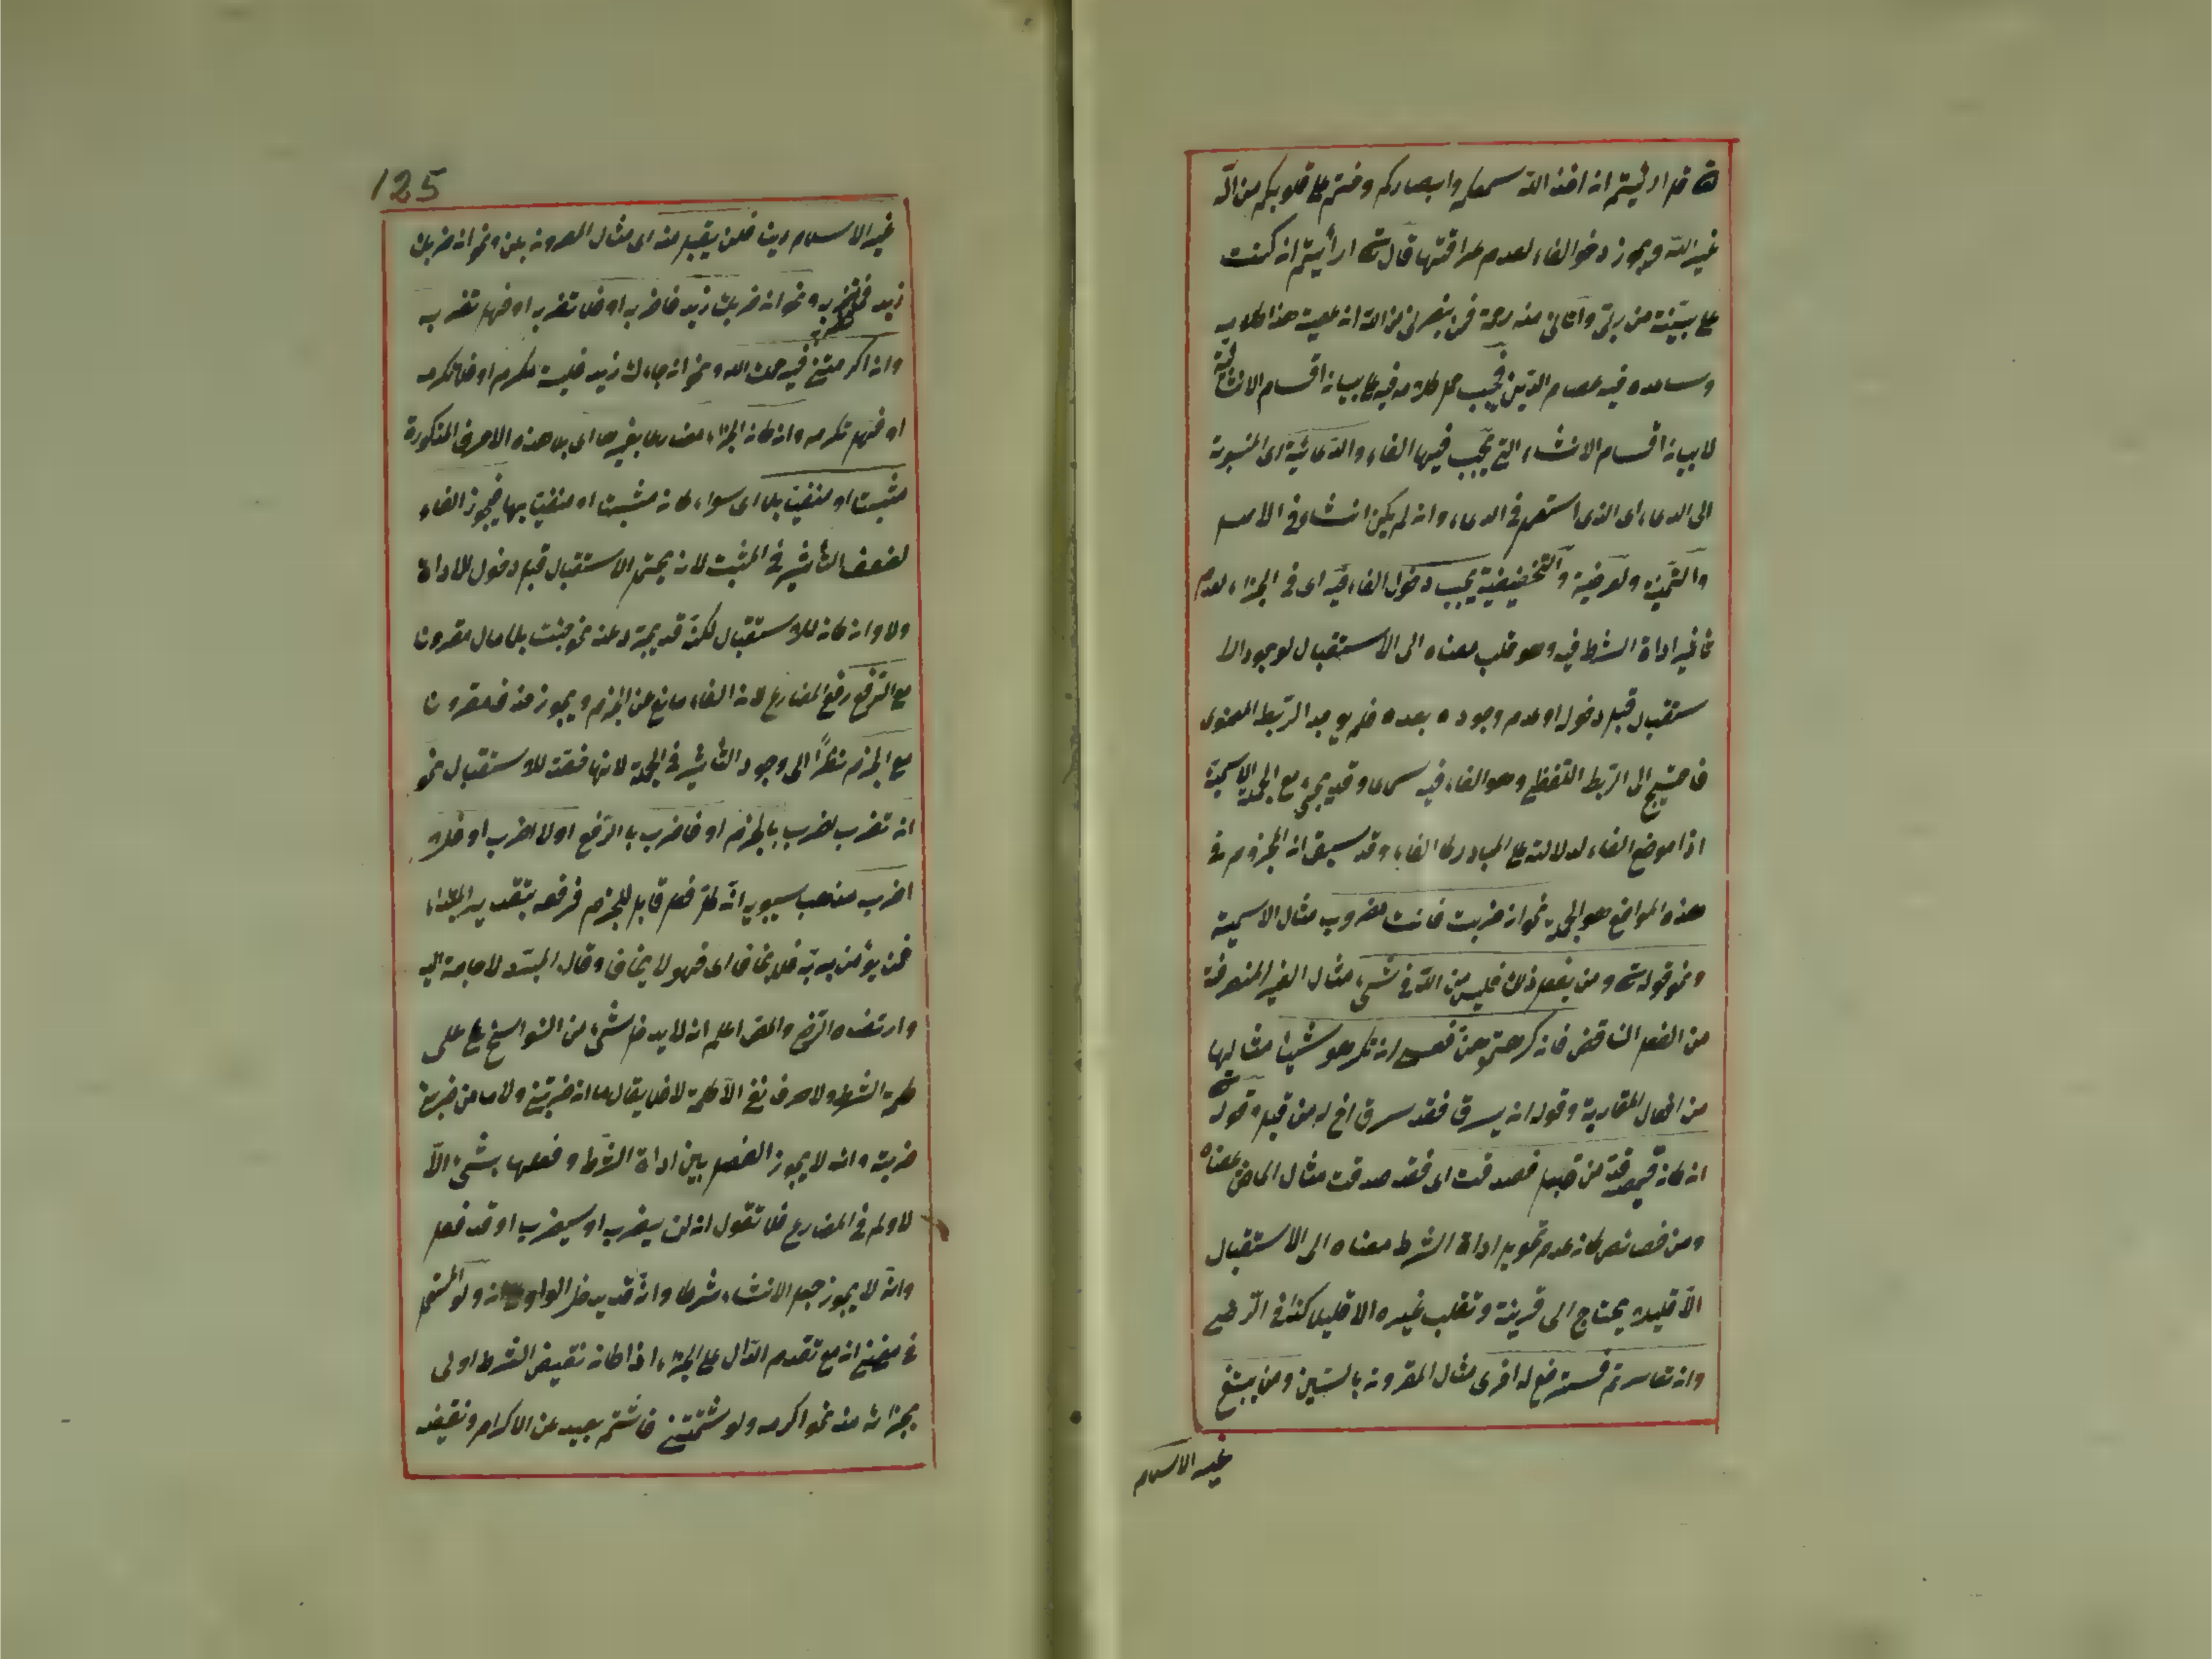 قل ارأيتم ان اخذ الله سمعكم وابصاركم وختم على قلوبكم من اله
غير الله ويجوز دخول الفاء لعدم عراقتها قال ارأيتم ان كنت
على بينة من ربى وآتانى منه رحمة فمن ينصرنى من الله ان عصيته هذا كلامه
وساعده فيه عصام الدين فيجب حمل كلامه فيه على بيان اقسام الانشائية
لا بيان اقسام الانشاء التى يجب فيها الفاء والدعائية اى المنسوبة
الى الدعاء اى الذى استعمل فى الدعاء وان لم يكن انشاء فى الاصل
والتمنية والعرضية والتحضيضية يجب دخول الفاء فيه اى فى الجزاء لعدم
تأثير اداة الشرط فيه وهو قلب معناه الى الاستقبال لوجود الا
ستقبال قبل دخول او عدم وجوده بعده فلم يوجد الربط المعنوى
فاحتيج الى الربط اللفظى وهو الفاء فيه وقد يجئ مع الجملة الاسمية
اذا موضع الفاء لدلالته على المبادرة كالفاء وقد سبق ان المجزوم فى
هذه المواضع هو الجملة نحو ان ضربت فانت مضروب مثال الاسمية
ونحو قوله ومن يفعل ذلك فليس من الله فى شئ مثال الغير المتصرفة
من الفعل الناقص فان كرهتموهن فعسى ان تكرهوا شيئا مثالها
من افعال المقاربة وقوله ان يسرق فقد سرق اخ له من قبل وقوله
ان كان قميصه قد من قبل فصدقت اى فقد صدقت مثال الماضى معناه
ومن خصائص كان عدم تحويل اداة الشرط معناه الى الاستقبال
الا قليلا يحتاج الى قرينة وتقلب غيره الا قليلا كذا فى الرضى
وان تعاسرتم فسترضع له اخرى مثال المقرونة بالسين ومن يبتغ
غير الاسلام
125
غير الاسلام دينا فلن يقبل منه اى مثال المقرونة بلن ونحو ان ضربك
زيد فلتضربه ونحو ان ضربك زيد فاضربه او فلا تضربه او فهل تضربه
وان اكرمتنى فيرحمك الله ونحو ان جاءك زيد فليت مكرم او فلا تكرمه
او فهل تكرمه وان كان الجزاء مضارعا بغيرها اى بلا هذه الاحرف المذكورة
مثبت او منفيا بلا اى سواء كان مثبت او منفيا بها فيجوز الفاء
لضعف التأثير فى المثبت لانه يحتمل الاستقبال قبل دخول الاداة
ولا وان كان للاستقبال لكنه قد يجرد عنه نحو جئت بلا مال مقرونا
مع الرفع رفع المضارع لان الفاء مانع عن الجزم ويجوز حذفه مقرونا
مع الجزم نظرا الى وجود التأثير فى الجملة لانها فقد للاستقبال نحو
ان تضرب اضرب بالجزم او فاضرب بالرفع او لا اضرب او فلا
اضرب مذهب سيبويه ان كل فعل قابل للجزم فرفعه بتقدير المبتداء
فمن يؤمن بربه فلا يخاف اى فهو لا يخاف وقال المبرد لا حاجة اليه
وارتضاه الرضى اعلم ان لا يدخل شئ من النواسخ على
كلمة الشرط ولا حرف نفى الا كلمة لا فلا يقال ما ان ضربتنى ولا ما من ضربك
ضربته وانه لا يجوز الفصل بين اداة الشرط وفعلها بشئ الا
لا ولم فى المضارع فلا تقول ان لن يضرب او سيضرب او قد فعل
وانه لا يجوز جعل الانشاء شرطا وانه قد يدخل الواو على ان ولو المستعمل
فى معنى ان مع تقدم الدال على الجزاء اذا كان نقيض الشرط اولى
بجزائه منه نحو اكرمه ولو شتمتنى فالشتم بعيد عن الاكرام ونقيضه